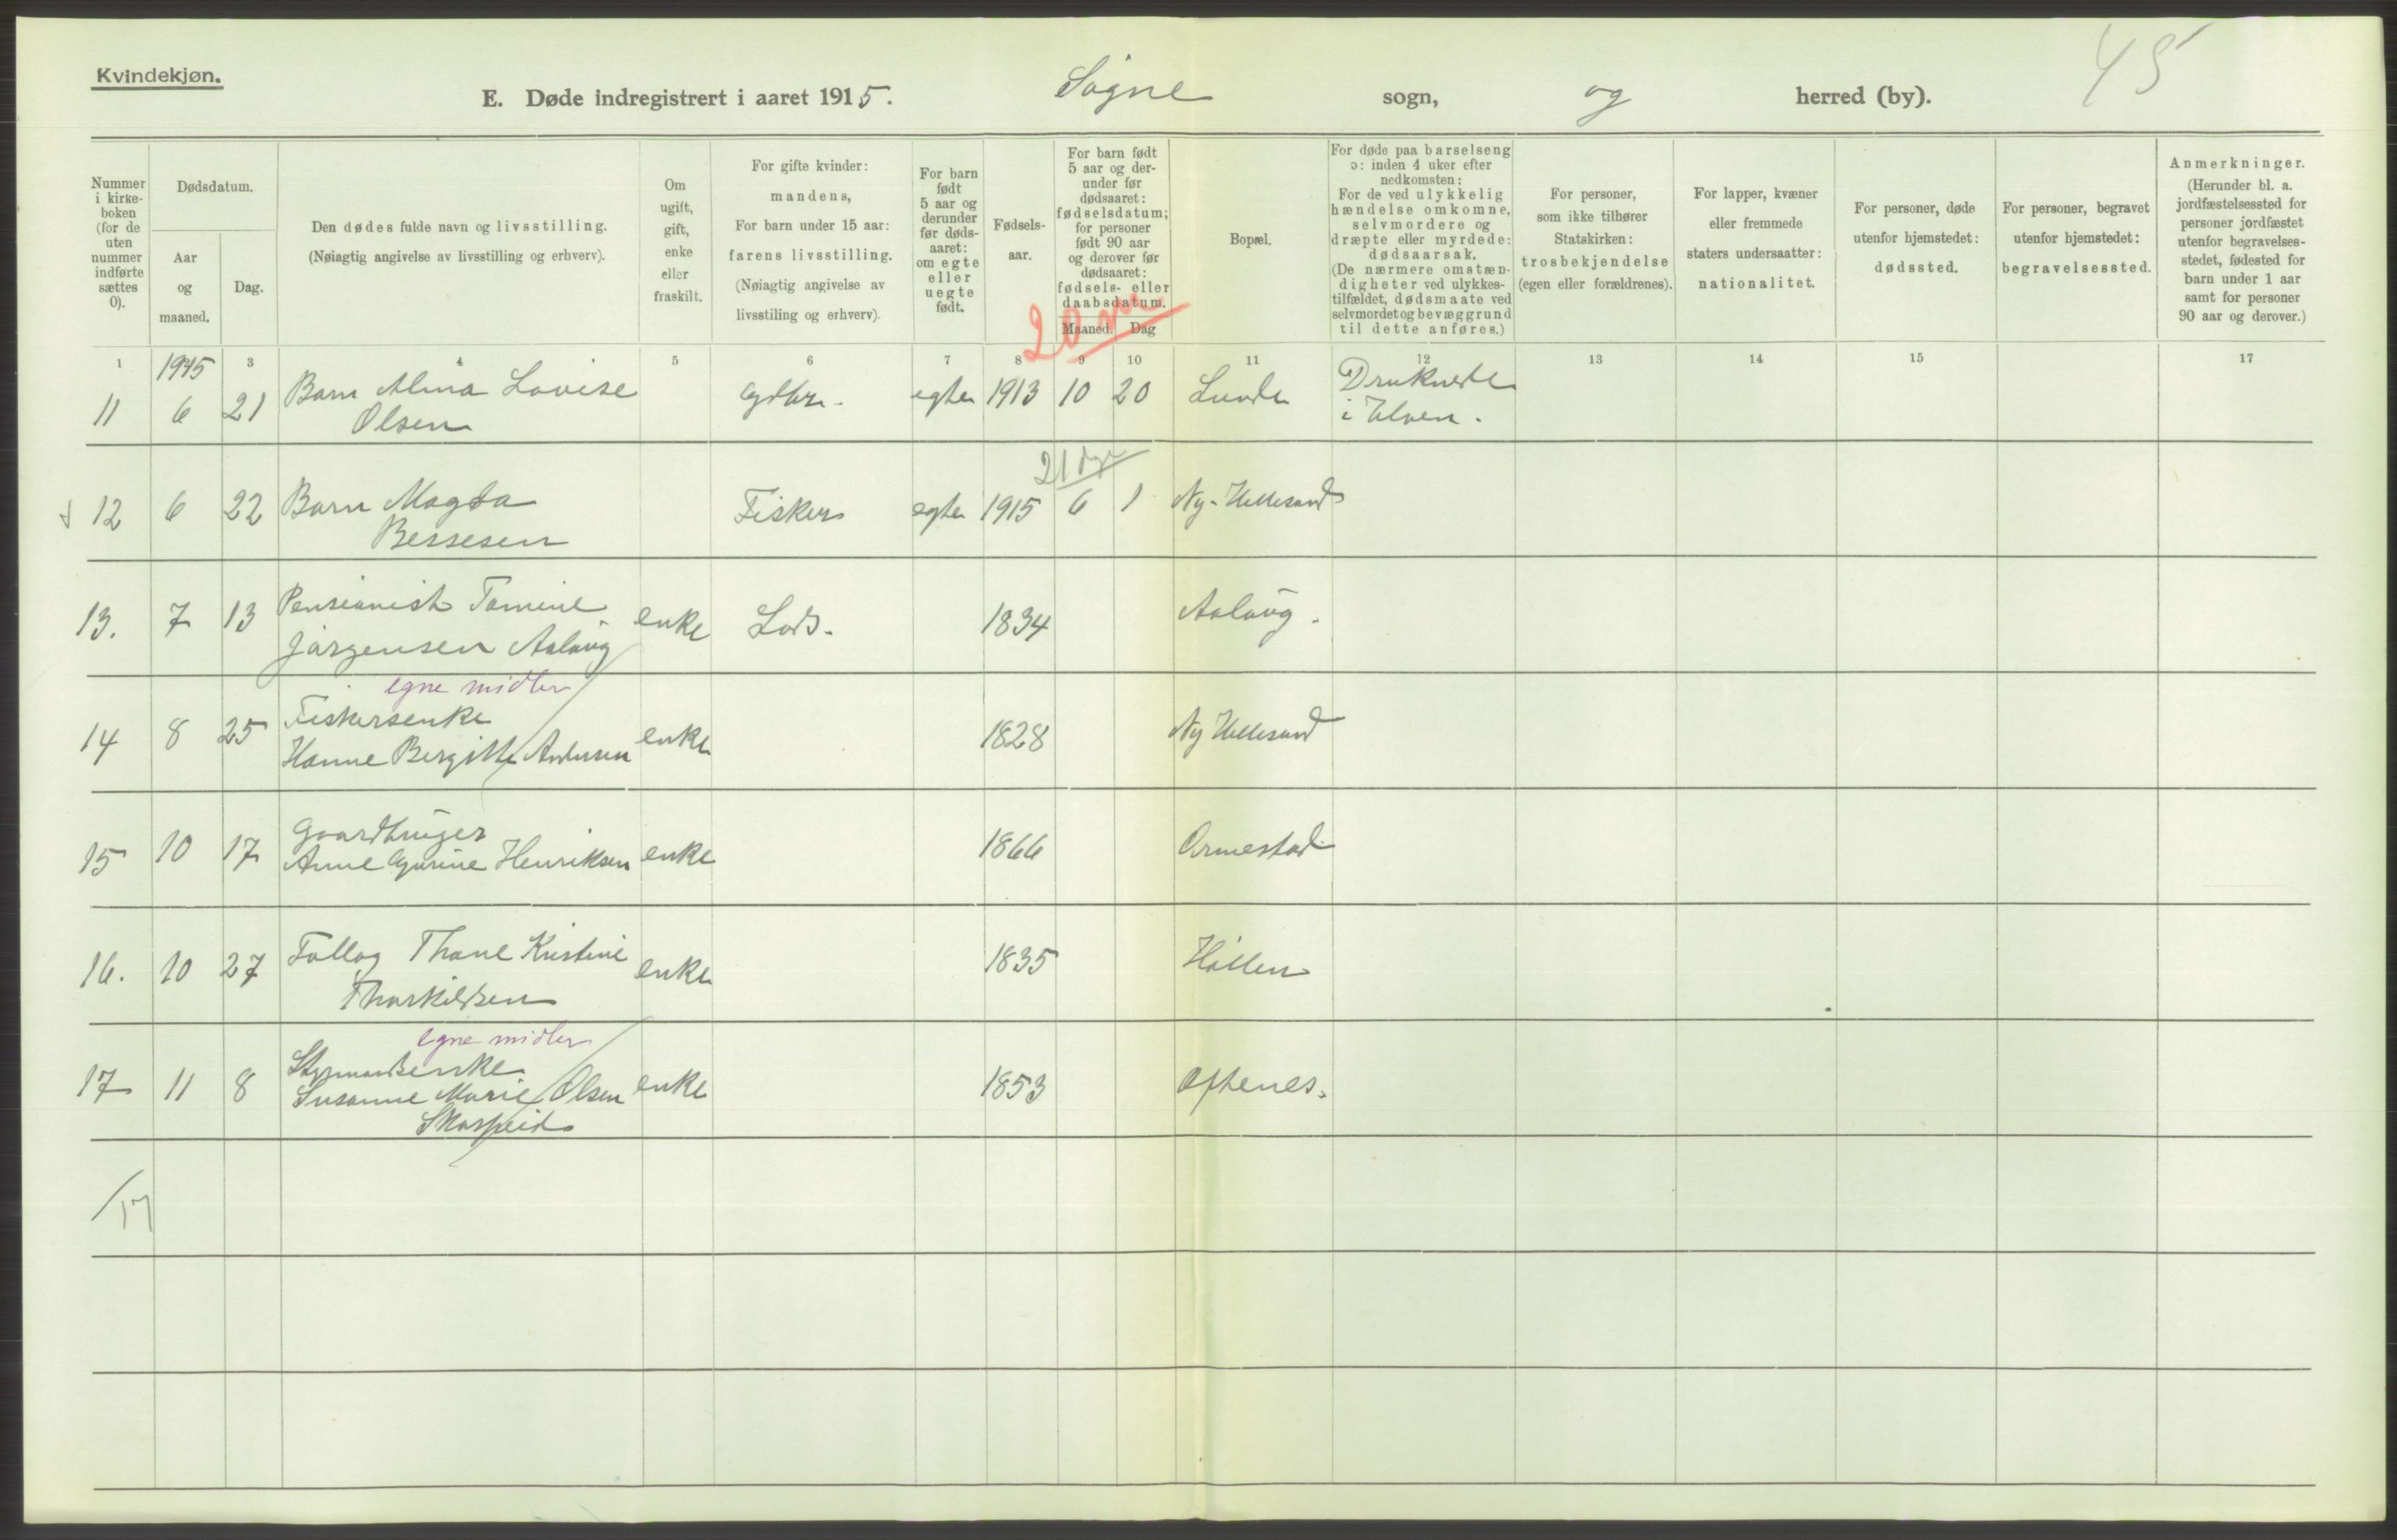 Kvindekjøn.
45
E. Døde indregistrert i aaret 1915. Søgne sogn, og herred (by).
Nummer i kirke-boken (for de uten nummer indførte sættes 0).
Dødsdatum.
Aar og maaned.
Dag.
Den dødes fulde navn og livsstilling.
(Nøiagtig angivelse av livsstilling og erhverv).
Om ugift, gift, enke eller fraskilt.
For gifte kvinder: mandens,
For barn under 15 aar: farens livsstilling.
(Nøiagtig angivelse av livsstiling og erhverv).
For barn født 5 aar og derunder før døds-aaret: om egte eller uegte født.
Fødsels-aar.
For barn født 5 aar og der-under før dødsaaret: fødselsdatum; for personer født 90 aar og derover før dødsaaret: fødsels- eller daabsdatum.
Maaned. Dag
20 m
Bopæl.
For døde paa barselseng ɔ: inden 4 uker efter nedkomsten:
For de ved ulykkelig hændelse omkomne, selvmordere og dræpte eller myrdede: dødsaarsak.
(De nærmere omstæn-digheter ved ulykkes-tilfældet, dødsmaate ved selvmordet og bevæggrund til dette anføres.)
For personer, som ikke tilhører Statskirken: trosbekjendelse (egen eller forældrenes).
For lapper, kvæner eller fremmede staters undersaatter: nationalitet.
For personer, døde utenfor hjemstedet: dødssted.
For personer, begravet utenfor hjemstedet: begravelsessted.
Anmerkninger.
(Herunder bl. a. jordfæstelsessted for personer jordfæstet utenfor begravelses-stedet, fødested for barn under 1 aar samt for personer 90 aar og derover.)
1 3 4 5 6 7 8 9 10 11 12 13 14 15 17
1915
11 6 21 Barn Alma Lovise egte 1913 10 20 Lunde Druknede
Olsen i Elven.
21 dge
12 6 22 Barn Magda Fisker egte 1915 6 1 Ny-Hellesund
Bessesen
13. 7 13 Pensionist Tomine enke Lods. 1834 Aaløug.
Jørgensen Aaløug
egne midler
14 8 25 Fiskersenke enke 1828 Ny Hellesund
Hanne Bergitte Andersen
15 10 17 Gaardbruger enke 1866 Ormestad
Anne Gurine Henriksen
16. 10 27 Fattig Thone Kristine enke 1835 Høllen
Thorkildsen
egne midler
17 11 8 Styrmandsenke enke 1853 Oftenes.
Susanne Marie Olsen
/17